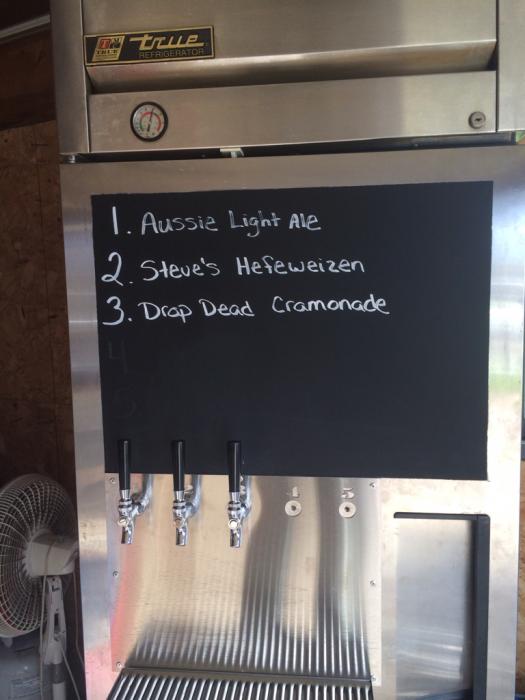 true
REFRIGERATOR
TRUE
1. Aussie Light Ale
2. Steve's Hefeweizen
3. Drop Dead Cramonade
4
5
4 5